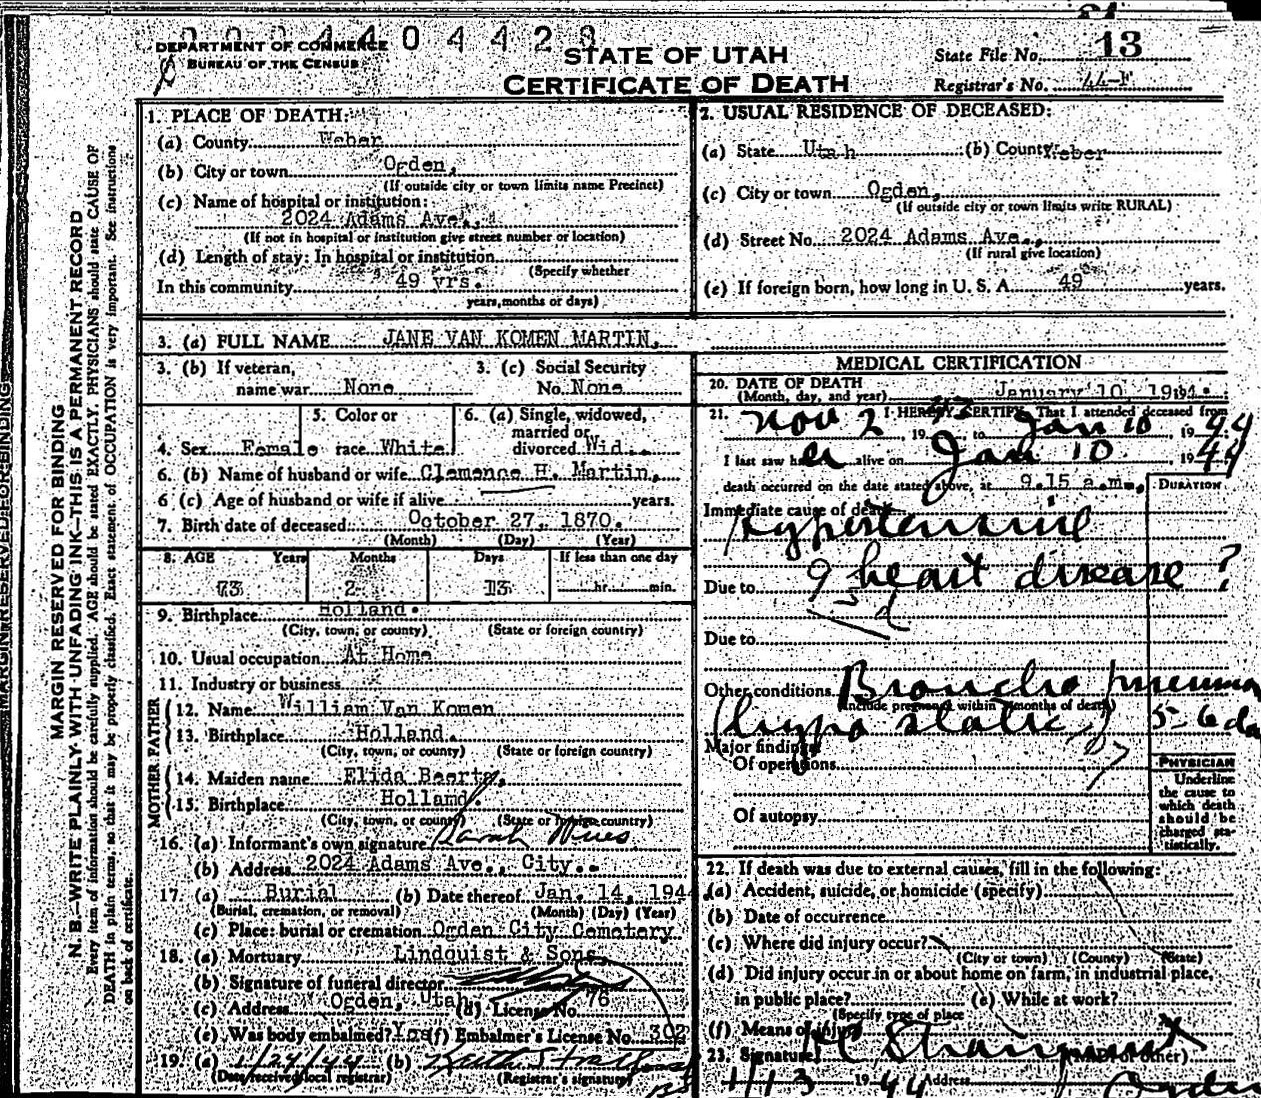 DEPARTMENT OF COMMERCE
BUREAU OF THE CENSUS
STATE OF UTAH
CERTIFICATE OF DEATH
State File No. 13
Registrar's No. 44-F
MARGIN RESERVED FOR BINDING
N. B.—WRITE PLAINLY WITH UNFADING INK—THIS IS A PERMANENT RECORD
Every item of information should be carefully supplied. AGE should be stated EXACTLY. PHYSICIANS should state CAUSE OF
DEATH in plain terms, so that it may be properly classified. Exact statement of OCCUPATION is very important. See instructions
on back of certificate.
1. PLACE OF DEATH:
(a) County Weber
(b) City or town Ogden,
(If outside city or town limits name Precinct)
(c) Name of hospital or institution:
2024 Adams Ave.,
(If not in hospital or institution give street number or location)
(d) Length of stay: In hospital or institution
(Specify whether
In this community 49 yrs.
years, months or days)
2. USUAL RESIDENCE OF DECEASED:
(a) State Utah (b) County Weber
(c) City or town Ogden,
(If outside city or town limits write RURAL)
(d) Street No. 2024 Adams Ave.,
(If rural give location)
(e) If foreign born, how long in U. S. A. 49 years.
3. (a) FULL NAME JANE VAN KOMEN MARTIN,
3. (b) If veteran, name war None
3. (c) Social Security No. None
4. Sex Female
5. Color or race White
6. (a) Single, widowed, married or divorced Wid.
6. (b) Name of husband or wife Clemence H. Martin,
6 (c) Age of husband or wife if alive years.
7. Birth date of deceased October 27, 1870.
(Month) (Day) (Year)
8. AGE Years Months Days If less than one day
73 2 13 hr. min.
9. Birthplace Holland.
(City, town, or county) (State or foreign country)
10. Usual occupation At Home
11. Industry or business
FATHER
12. Name William Van Komen
13. Birthplace Holland.
(City, town, or county) (State or foreign country)
MOTHER
14. Maiden name Elida Beertz,
15. Birthplace Holland.
(City, town, or county) (State or foreign country)
16. (a) Informant's own signature Sarah
(b) Address 2024 Adams Ave., City.
17. (a) Burial (b) Date thereof Jan. 14, 1944
(Burial, cremation, or removal) (Month) (Day) (Year)
(c) Place: burial or cremation Ogden City Cemetery
18. (a) Mortuary Lindquist & Sons,
(b) Signature of funeral director
(c) Address Ogden, Utah (d) License No. 76
(e) Was body embalmed? Yes (f) Embalmer's License No. 302
19. (a) 1/24/44 (b) Keith
(Date received local registrar) (Registrar's signature)
MEDICAL CERTIFICATION
20. DATE OF DEATH
(Month, day, and year) January 10, 1944.
21. I HEREBY CERTIFY, That I attended deceased from
Nov 2, 1943 to Jan 10, 1944
I last saw her alive on Jan 10 1944
death occurred on the date stated above, at 9.15 a.m.
DURATION
Immediate cause of death
Hypertensive
Due to heart disease ?
Due to
Other conditions Broncho pneumon
(Include pregnancy within 3 months of death)
(hypostatic) 5-6 da
Major findings:
Of operations
Of autopsy
PHYSICIAN
Underline
the cause to
which death
should be
charged sta-
tistically.
22. If death was due to external causes, fill in the following:
(a) Accident, suicide, or homicide (specify)
(b) Date of occurrence
(c) Where did injury occur?
(City or town) (County) (State)
(d) Did injury occur in or about home on farm, in industrial place,
in public place? (e) While at work?
(Specify type of place
(f) Means of injury
23. Signature (M.D. or other)
1/13 1944 Address Ogden